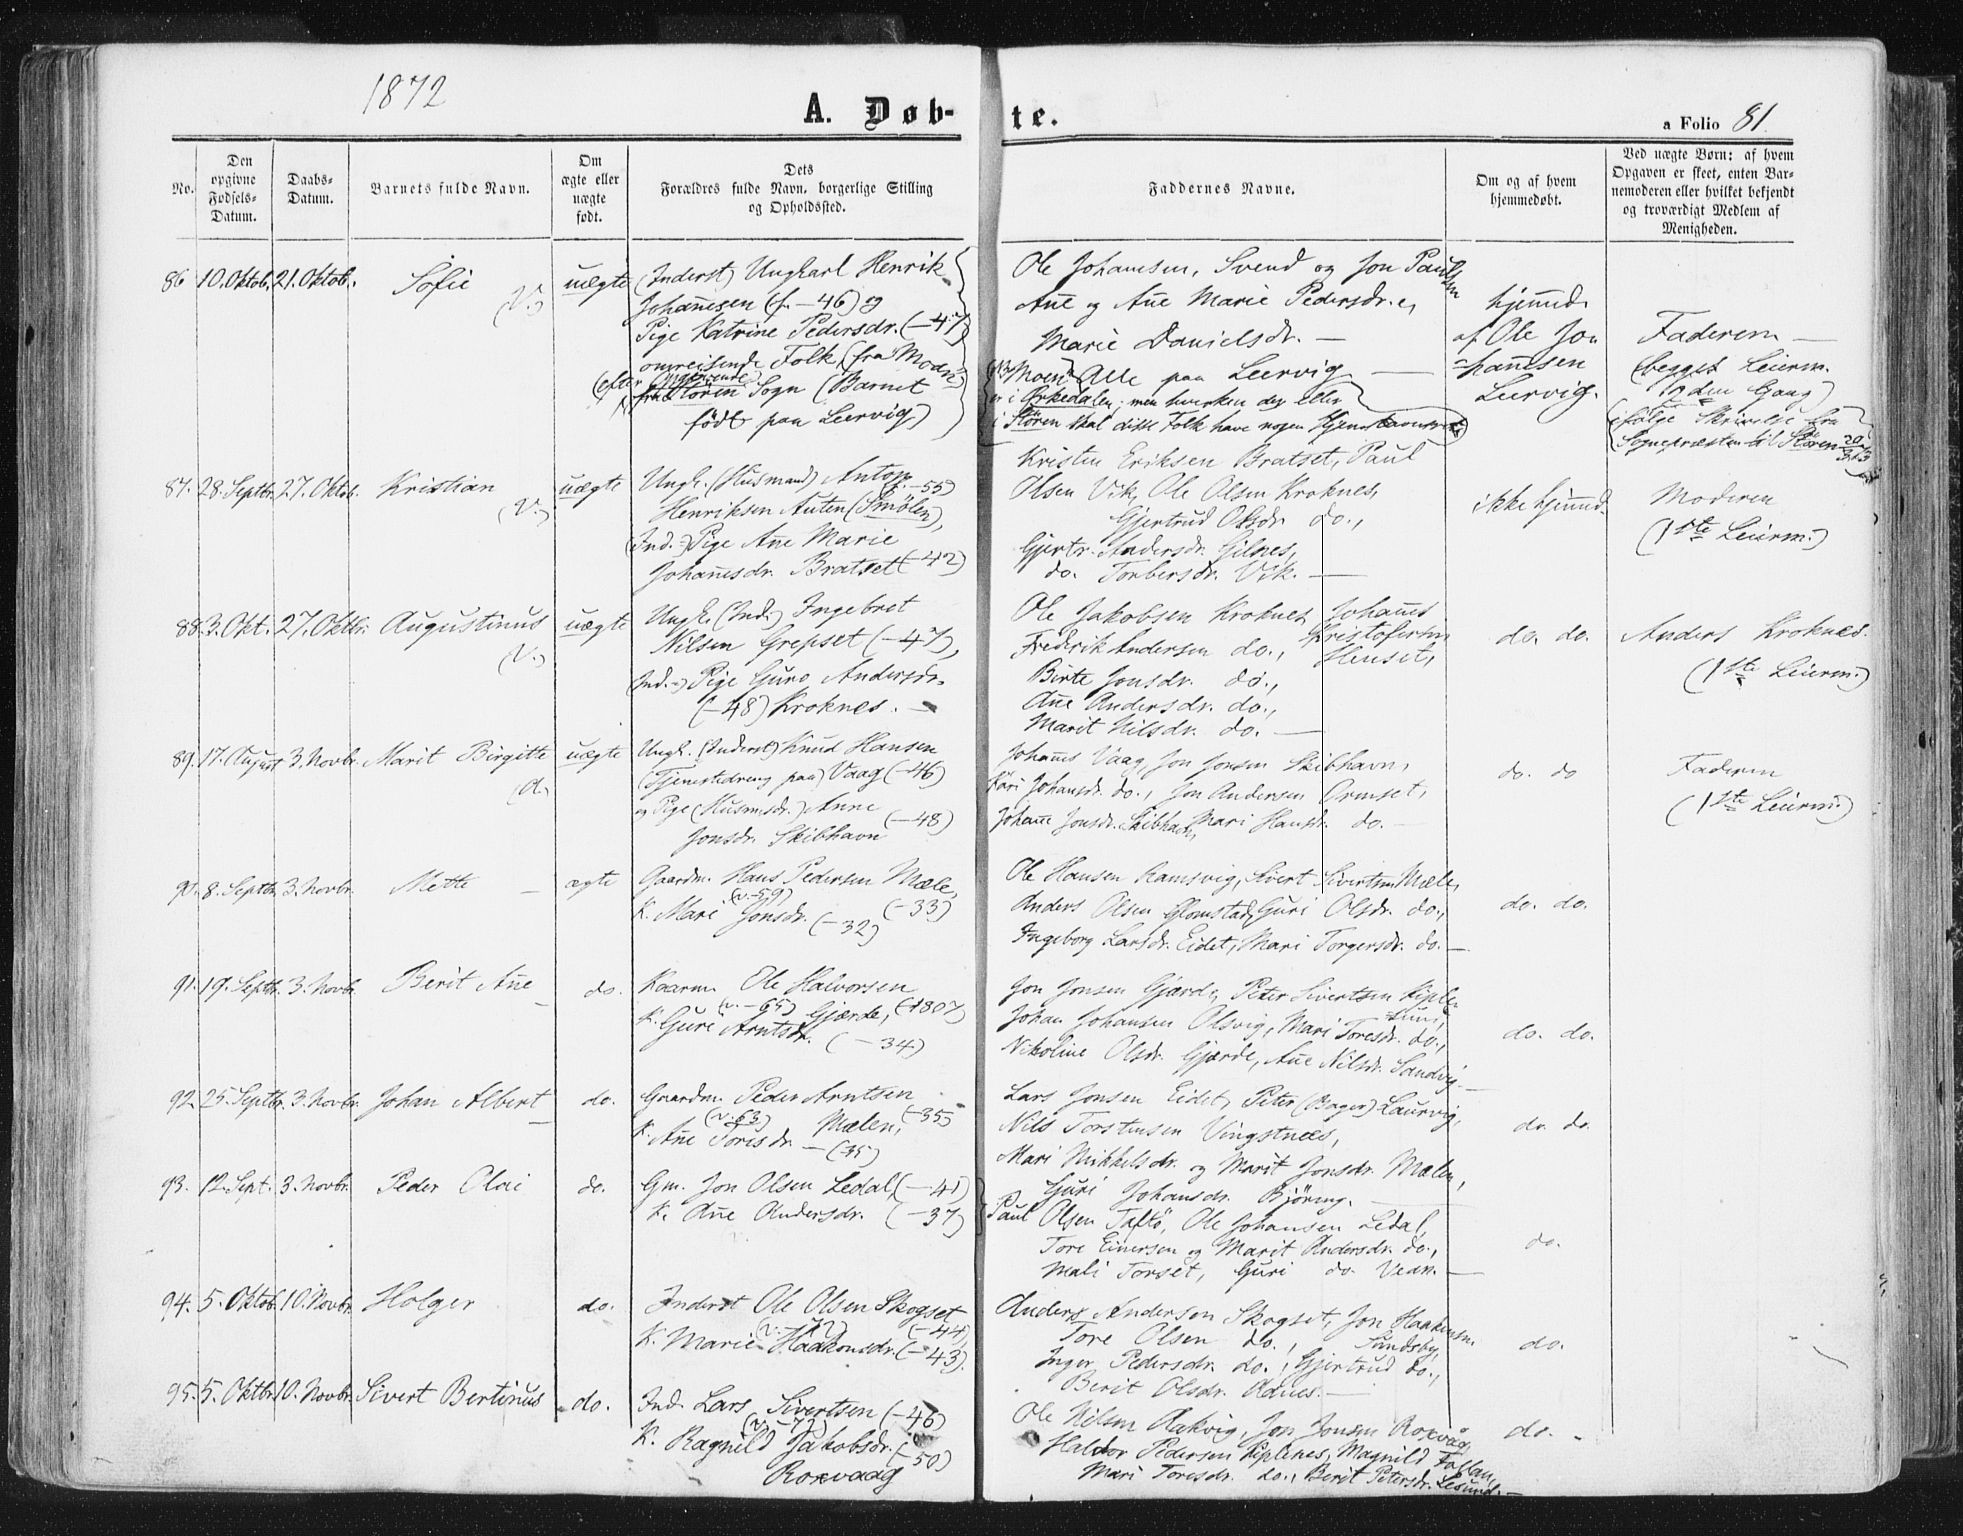 1872
A. Døb-
te.
a Folio 81.
No.
Den opgivne Fødsels-Datum.
Daabs-Datum.
Barnets fulde Navn.
Om ægte eller uægte født.
Dets Forældres fulde Navn, borgerlige Stilling og Opholdssted.
Faddernes Navne.
Om og af hvem hjemmedøbt.
Ved uægte Børn: af hvem Opgaven er skeet, enten Barnemoderen eller hvilket bekjendt og troværdigt Medlem af Menigheden.
86 10. Oktob. 21. Oktob. Sofie (V.) uægte
(Inderst) Ungkarl Henrik
Johannesen (f. -46) og
Pige Katrine Pedersdr. (-47)
omreisende Folk (fra Moen
Støren Sogn (Barnet
født paa Leervig)
Ole Johansen, Svend og Jon Paulsen
Ane og Ane Marie Pedersdr.
Marie Danielsdr. —
Moen Alle paa Leervig —
er i Orkedalen; men hverken der eller
i Støren skal disse Folk have nogen
hjemmd.
af Ole Jo
hannesen
Leervig.
Faderen —
(begges Leierm.
Gang)
ifølge Skrivelse fra
Sognepræsten til Støren
87. 28. Septbr. 27. Oktob. Kristian (V.) uægte
Ungk. (Husmand) Anton (-55)
Henriksen Auten (Smølen),
(Ind.) Pige Ane Marie
Johannesdr. Bratset (-42)
Kristen Eriksen Bratset, Paul
Olsen Vik, Ole Olsen Kroknes,
Gjertrud Olsdr. do.,
Gjertr. Andersdr. Gilnes,
do. Torbersdr. Vik. —
ikke hjemmd.
Moderen
(1ste Leierm.)
88. 3. Okt. 27. Oktbr. Augustinus (V.) uægte
Ungk. (Ind.) Ingebret
Nilsen Grepset (-47),
(Ind.) Pige Guro Andersdr.
(-48) Kroknes. —
Ole Jakobsen Kroknes, Johannes
Frederik Andersen do., Kristofersen Henset,
Birte Jonsdr. do.,
Ane Andersdr. do.,
Marit Nilsdr. do. —
do. do.
Anders Kroknes.
(1ste Leierm.)
89. 17. August 3. Novbr. Marit Birgitte uægte
Ungk. (Inderst) Knud Hansen
(Tjenestedreng paa) Vaag (-46)
og Pige (Husmsdr.) Anne (-48)
Jonsdr. Skibhavn
Johannes Vaag, Jon Jonsen Skibhavn,
Kari Johansdr. do., Jon Andersen Ormset,
Johanne Jonsdr. Skibhavn, Mari Hansdr. do. —
do. do
Faderen
(1ste Leierm.)
90. 8. Septbr. 3. Novbr. Mette — ægte
Gaardm. Hans Pedersen Mæle, (-33)
(v. -59)
K. Mari Jonsdr. (-32)
Ole Hansen Ramsvig, Sivert Sivertsen Mæle,
Anders Olsen Glomstad, Guri Olsdr. do.,
Ingeborg Larsdr. Eidet, Mari Torgersdr. do. —
do. do.
91. 19. Septbr. 3. Novbr. Berit Ane — do.
Kaarm. Ole Halvorsen
(v. -65) Gjærde, (1807)
K. Guri Arntsdr. (-34)
Jon Jonsen Gjærde, Peter Sivertsen
Johan Johansen Olsvig, Mari Toresdr. do.,
Nikoline Olsdr. Gjærde, Ane Nilsdr. Sandvig. —
do. do.
92. 25. Septbr. 3. Novbr. Johan Albert — do.
Gaardm. Peder Arntsen
(v. 63) Mælen, (-35)
K. Ane Toresdr. — (35)
Lars Jonsen Eidet, Peter (Bager) Laurvig,
Nils Torstensen Vingstnæs,
Mari Mikkelsdr. og Marit Jonsdr. Mælen,
Guri Johansdr. Bjøring. —
do. do.
93. 12. Sept. 3. Novbr. Peder Olai do.
Gm. Jon Olsen Ledal, (-41)
K. Ane Andersdr. (-37)
Paul Olsen Taftø, Ole Johansen Ledal,
Tore Einersen og Marit Andersdr. do.,
Mali Torset, Guri do. —
do.
94. 5. Oktob. 10. Novbr. Holger do.
Inderst Ole Olsen Skogset
(v. -72) (-44)
K. Marie Haakonsdr. (-43).
Anders Andersen Skogset, Jon Haakensen
Tore Olsen do., Sundsby,
Inger Pedersdr. do., Gjertrud do.,
Berit Olsdr. —
do.
95. 5. Oktbr. 10. Novbr. Sivert Bertinus do.
Ind. Lars Sivertsen (-46)
(v. -72)
K. Ragnild Jakobsdr. (-50)
Roxvaag
Ole Nilsen Rakvig, Jon Jonsen Roxvaag,
Haldor Pedersen Riplenes, Magnild
Mari Toresdr. do., Berit Petersdr. Lesund. —
do.